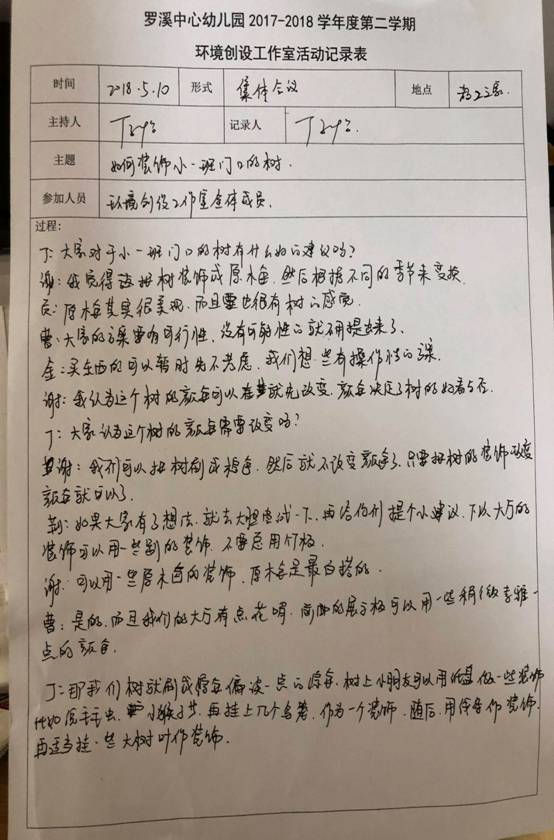 罗溪中心幼儿园 2017-2018 学年度第二学期
环境创设工作室活动记录表
时间 2018.5.10 形式 集体会议 地点
主持人 记录人
主题 如何装饰小一班门口的树.
参加人员 环境创设工作室全体成员.
过程:
丁: 大家对于小一班门口的树有什么好的建议吗?
谢: 我觉得该把树装饰成原木色, 然后根据不同的季节来变换.
原木色其实很美观, 而且也很有树的感觉.
曹: 大家的方案要有可行性, 没有可能性的就不用提出来了.
金: 买东西的可以暂时先不考虑, 我们想一些有操作性的方案.
谢: 我认为这个树的颜色可以在 就先改变, 颜色决定了树的好看与否.
丁: 大家认为这个树的颜色需要改变吗?
谢: 我们可以把树刷成棕色, 然后就不改变颜色了, 只要把树的装饰改变
颜色就可以了.
荆: 如果大家有了想法, 就去大胆尝试一下, 再给你们提个小建议, 下次大厅的
装饰可以用一些别的装饰, 不要总用KT板.
谢: 可以用一些原木色的装饰, 原木色是最百搭的.
曹: 是的, 而且我们的大厅有点花哨, 前面的展示板可以用一些稍微素雅一
点的颜色.
丁: 那我们树就刷成棕色偏淡一点的棕色, 树上小朋友可以用纸盘做一些装饰
比如说毛毛虫, 小 , 再挂上几个鸟窝, 作为一个装饰, 随后, 用 作装饰.
再适当挂一些大树叶作装饰.